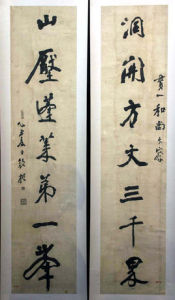 洞開方丈三千界
貫一和尚
山壓蓬萊第一峯